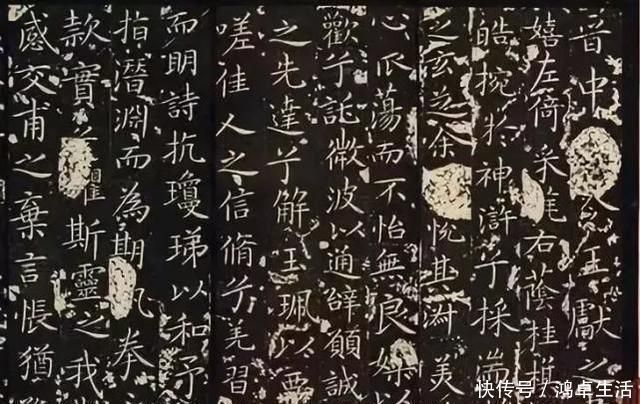 晉中王獻之
嬉左倚采旄右蔭桂旗
皓捥於神滸兮採湍
之玄芝余悅其淑美
心振蕩而不怡無良媒以
歡兮託微波以通辭願誠
之先達兮解玉珮以要
嗟佳人之信脩兮羌習
而明詩抗瓊珶以和予
指潛淵而為期執拳
款實兮懼斯靈之我
感交甫之棄言悵猶
快传号／鸿卓生活